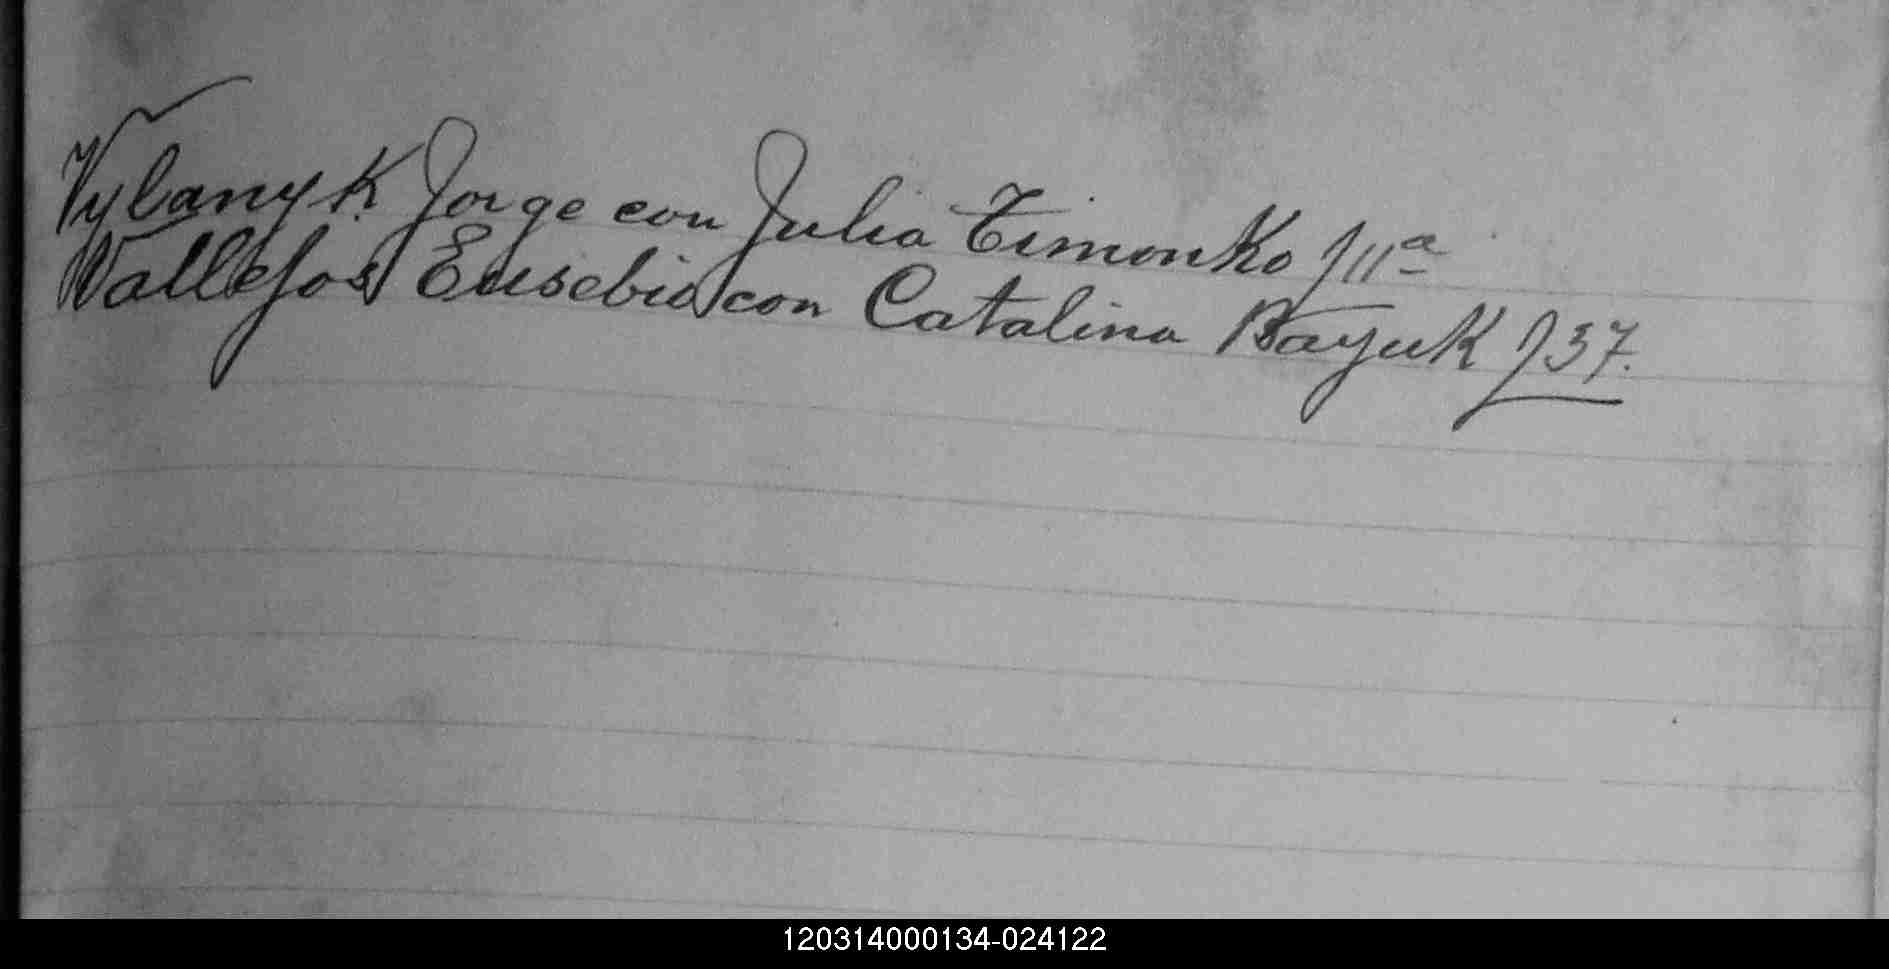 Vylanyk Jorge con Julia Timonko f 11ª
Vallejos Eusebio con Catalina Bayuk f 37.
120314000134-024122